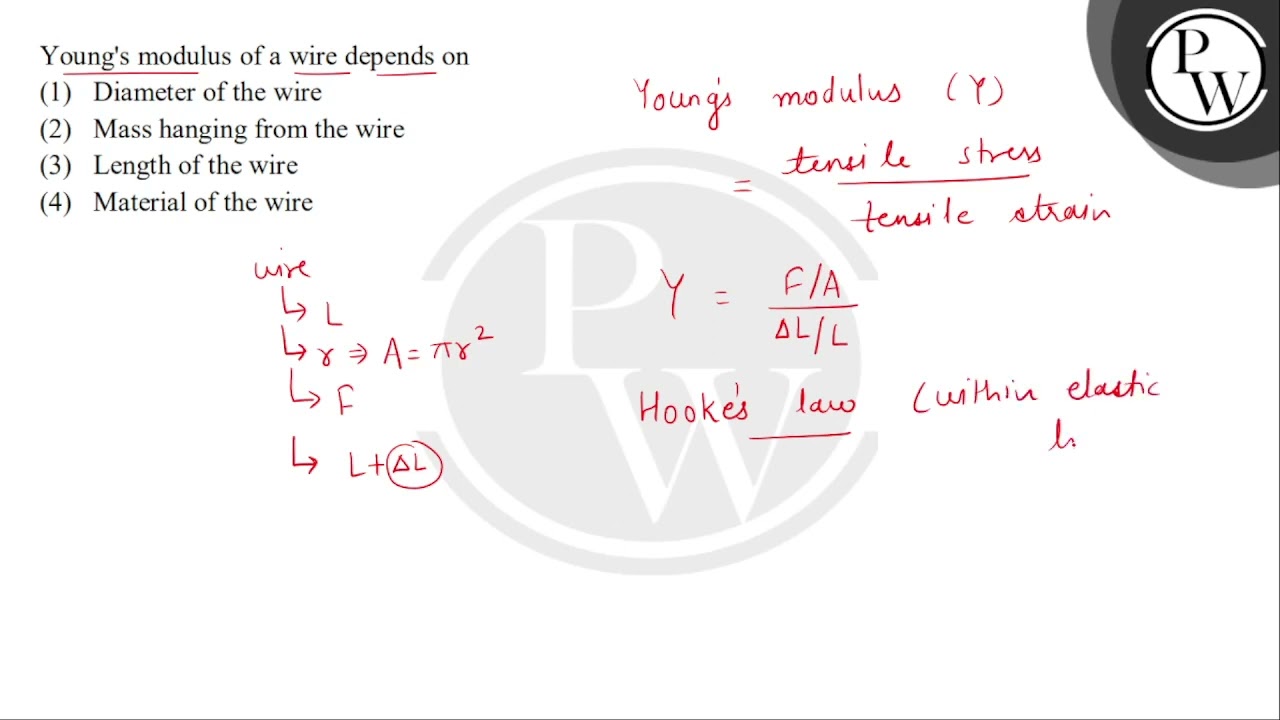 Young's modulus of a wire depends on
(1) Diameter of the wire
(2) Mass hanging from the wire
(3) Length of the wire
(4) Material of the wire
wire
↳ L
↳ r ⇒ A = πr²
↳ F
↳ L+ΔL
Young's modulus (Y)
= tensile stress
tensile strain
Y = F/A
ΔL/L
Hooke's law (within elastic
li
PW
PW